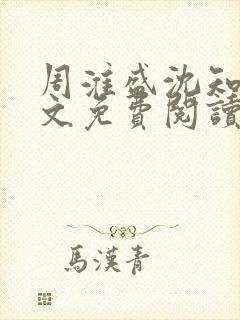 周淮盛沈知
文免費閱讀
馬漢青